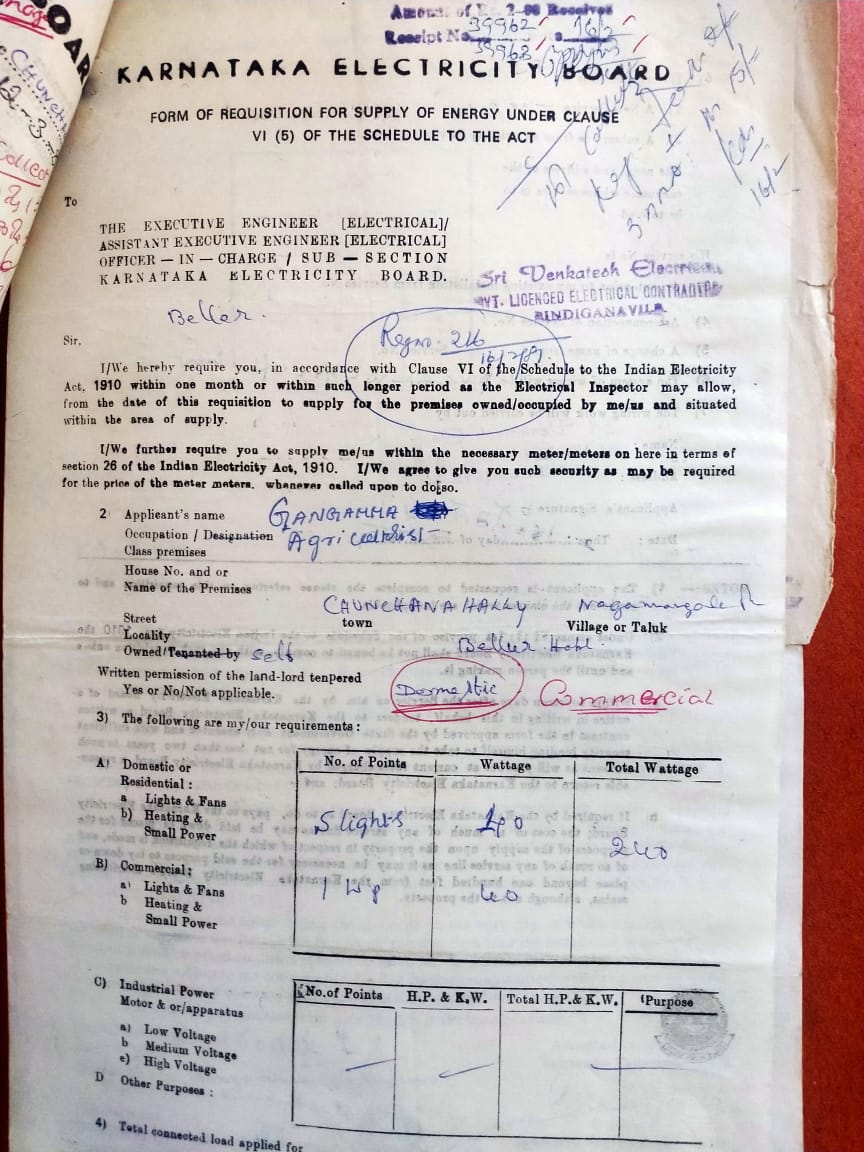 Amount of Rs. 2-00 Received
Receipt No. 39962 16/2
39963
KARNATAKA ELECTRICITY BOARD
FORM OF REQUISITION FOR SUPPLY OF ENERGY UNDER CLAUSE
VI (5) OF THE SCHEDULE TO THE ACT
To
THE EXECUTIVE ENGINEER [ELECTRICAL]/
ASSISTANT EXECUTIVE ENGINEER [ELECTRICAL]
OFFICER — IN — CHARGE / SUB — SECTION
KARNATAKA ELECTRICITY BOARD.
Sri Venkatesh Electricals
GOVT. LICENCED ELECTRICAL CONTRACTOR
BINDIGANAVILE
Bellur.
Regno. 216
16/2/89
Sir,
I/We hereby require you, in accordance with Clause VI of the Schedule to the Indian Electricity
Act, 1910 within one month or within such longer period as the Electrical Inspector may allow,
from the date of this requisition to supply for the premises owned/occupied by me/us and situated
within the area of supply.
I/We further require you to supply me/us within the necessary meter/meters on here in terms of
section 26 of the Indian Electricity Act, 1910. I/We agree to give you such security as may be required
for the price of the meter meters. whenever called upon to do so.
2) Applicant's name GANGAMMA
Occupation / Designation Agriculturist
Class premises
House No. and or
Name of the Premises
CHUNCHANAHALLY Nagamangala
Street town Village or Taluk
Locality Bellur Hobl
Owned/Tenanted by self
Written permission of the land-lord tenpered
Yes or No/Not applicable.
Domestic Commercial
3) The following are my/our requirements :
No. of Points Wattage Total Wattage
A) Domestic or
Residential :
a Lights & Fans
b) Heating &
Small Power
5 lights 40
240
B) Commercial:
a) Lights & Fans
b Heating &
Small Power
1 40
C) Industrial Power
Motor & or/apparatus
No.of Points H.P. & K.W. Total H.P.& K.W. Purpose
a) Low Voltage
b Medium Voltage
c) High Voltage
D Other Purposes :
4) Total connected load applied for